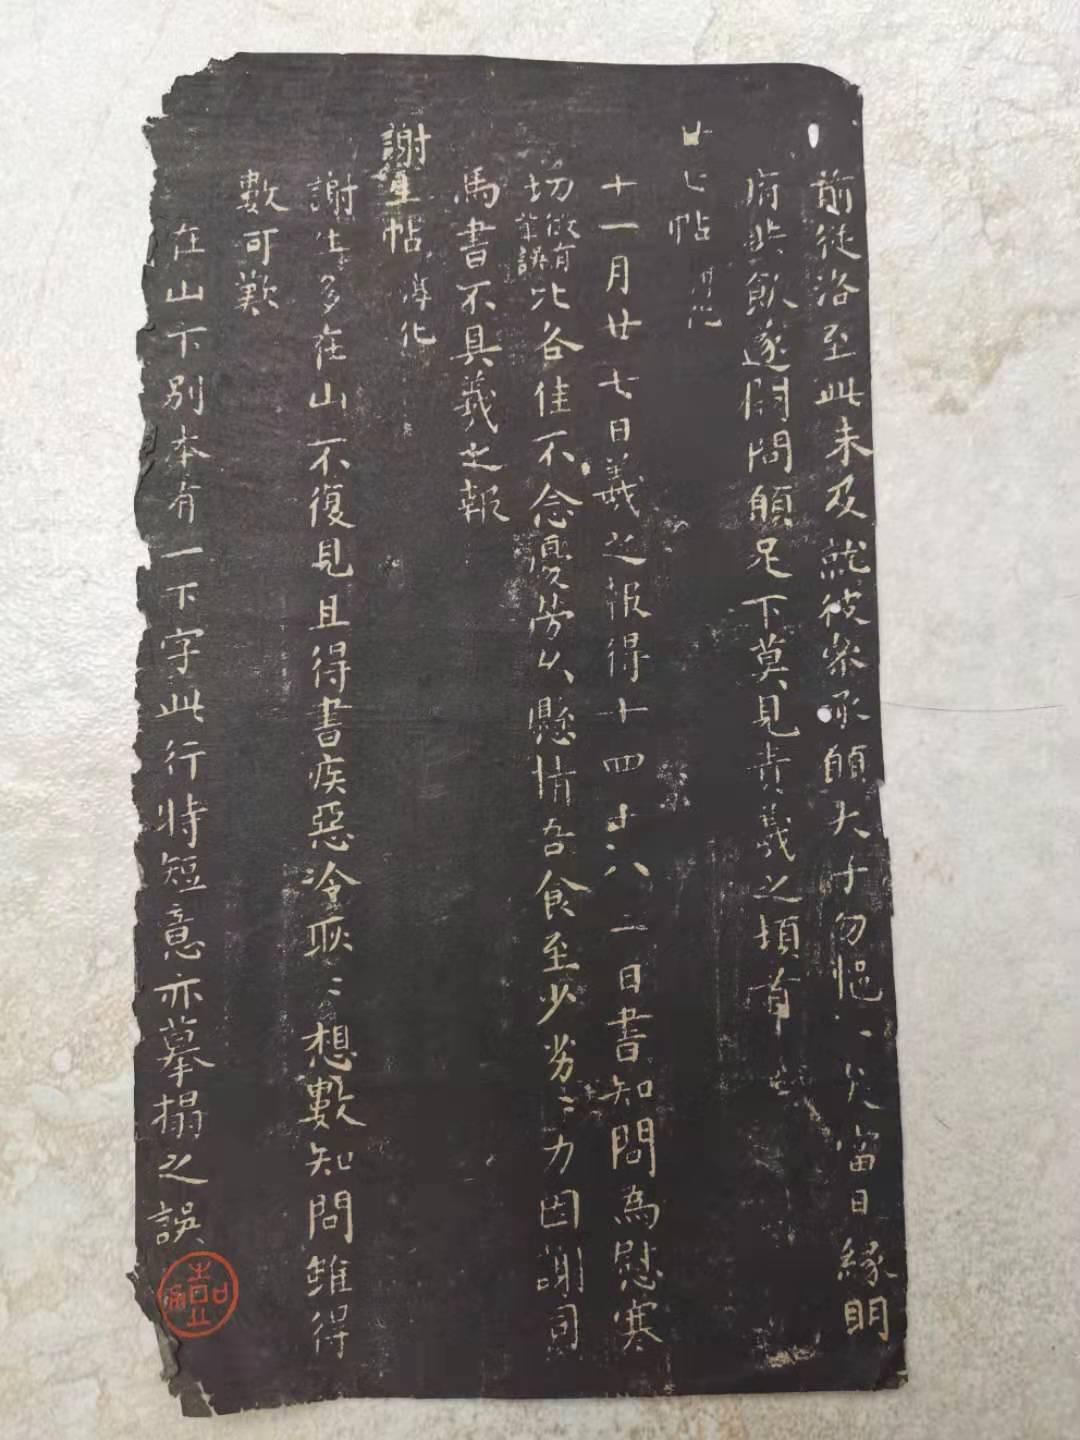 前從洛至此未及就彼參承願夫子勿悒〻矣當日緣明
府共飲遂闕問願足下莫見責羲之頓首
廿七帖
十一月廿七日羲之報得十四十八二日書知問為慰寒
切欲有筆誤比各佳不念憂勞久懸情吾食至少劣〻力因謝司
馬書不具羲之報
謝生帖 淳化
謝生多在山不復見且得書疾惡冷耿〻想數知問雖得
數可歎
在山下別本有一下字此行特短意亦摹搨之誤